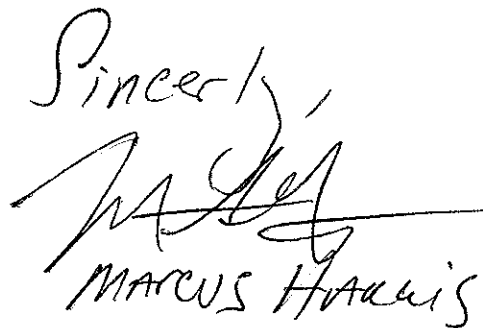 Sincerly,
MARCUS HARRIS